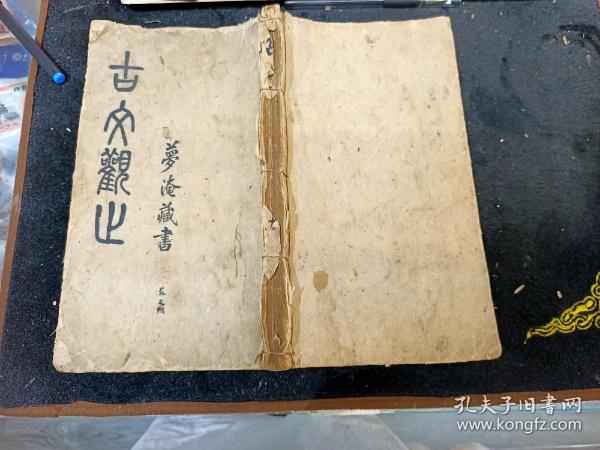 古文觀止
夢淹藏書
孔夫子旧书网
www.kongfz.com